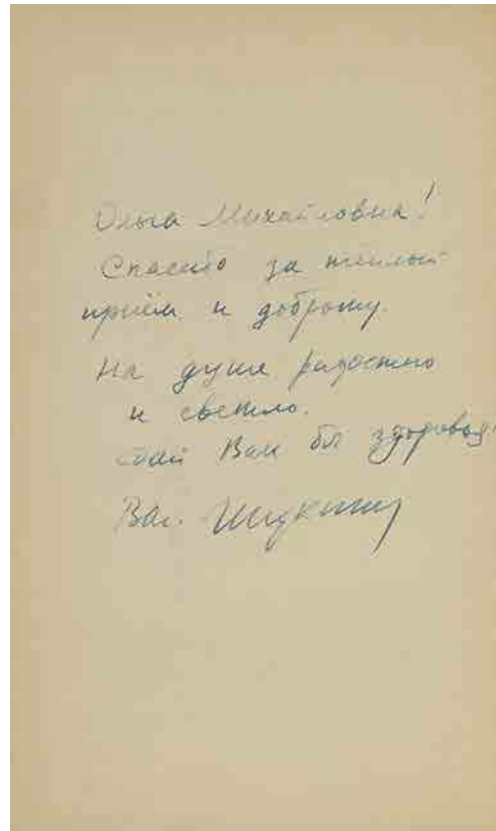 Ольга Михайловна!
Спасибо за тёплый
приём и доброту.
На душе радостно
и светло.
Дай Вам бг здоровья!
Вас. Шукшин